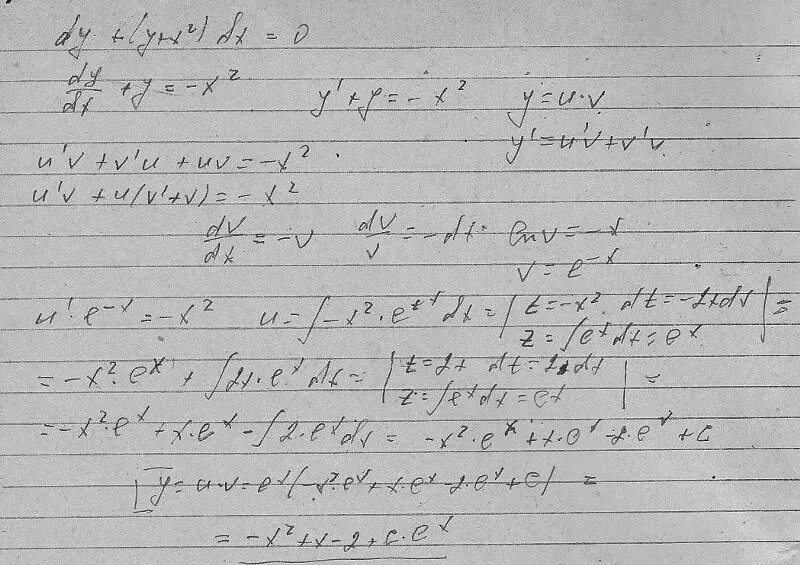 dy + (y+x²) dx = 0
dy/dx + y = -x²   y' + y = -x²   y = u·v
y' = u'v + v'u
u'v + v'u + uv = -x²
u'v + u(v'+v) = -x²
dv/dx = -v   dv/v = -dx   ln v = -x
v = e^-x
u'·e^-x = -x²   u = ∫-x²·e^x dx = | t = -x²   dt = -2xdx | =
z = ∫e^x dx = e^x
= -x²·e^x + ∫2x·e^x dx = | t = 2x   dt = 2dx | =
z = ∫e^x dx = e^x
= -x²·e^x + x·e^x - ∫2·e^x dx = -x²·e^x + x·e^x - 2·e^x + C
y = u·v = e^x(-x²·e^x + x·e^x - 2·e^x + C) =
= -x² + x - 2 + C·e^x